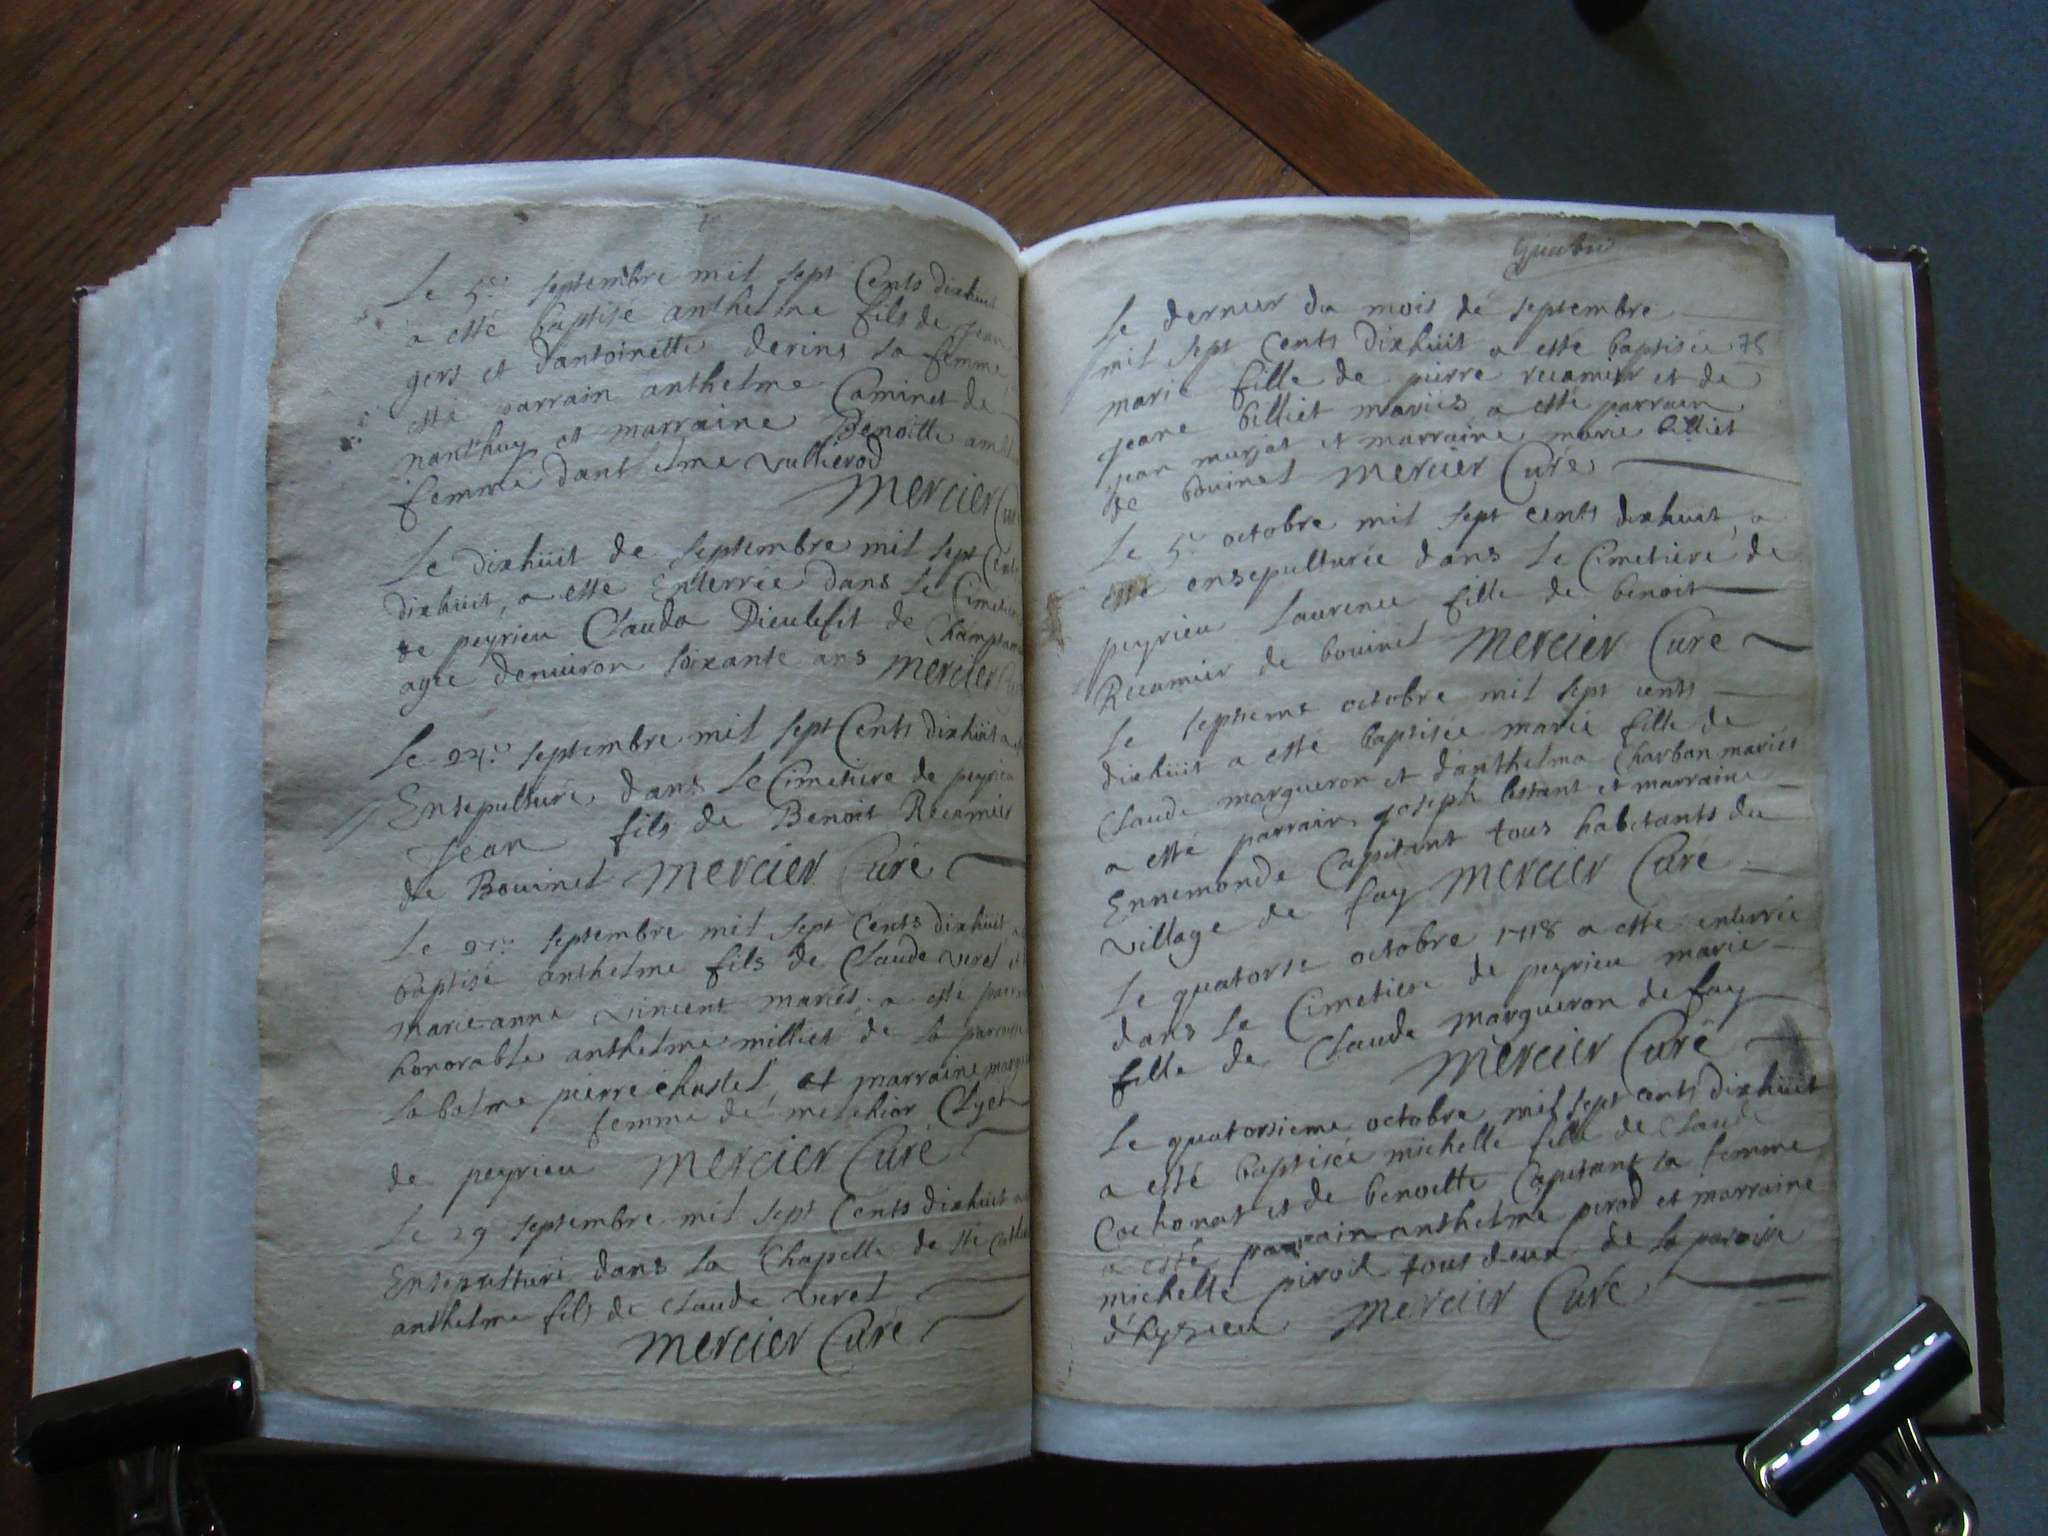 Le 5e. septembre mil sept Cents dixhuit
a esté baptisé anthelme fils de jean
gers et dantoinette derins sa femme
esté parrain anthelme Caminet de
nanthuy et marraine Benoitte
femme danthelme vullierod
Mercier Cu
Le dixhüit de septembre mil sept Cent
dixhüit, a esté Enterrée dans le Cimetiere
de peyrieu Clauda Dieulefit de
agée denuiron soixante ans Mercier
Le septembre mil sept Cents dixhüit a
Ensepulturé dans le Cimetiére de peyrieu
jean fils de Benoit Recamier
de Bouinet Mercier Curé
Le septembre mil sept Cents dixhüit a
baptisé anthelme fils de Claude veret et
marie anne vincent mariés, a esté parr
honorable anthelme milliet de la parroisse
la balme pierre chastel et marraine margu
femme de melchior Clyet
de peyrieu Mercier Curé
Le 29 septembre mil sept Cents dixhuit a
Ensepulturé dans la Chapelle de ste Cathe
anthelme fils de Claude veret
Mercier Curé
Le dernier du mois de septembre
mil sept Cents dixhüit a esté baptisée 75
marie fille de pierre recamier et de
jeane billiet mariés a esté parrain
jean murjat et marraine marie billiet
de bouinet Mercier Curé
Le 5e octobre mil sept cents dixhuit, a
esté ensepulturée dans le Cimetiére de
peyrieu laurence fille de benoit
Recamier de bouinet Mercier Curé
Le septieme octobre mil sept cents
dixhüit a esté baptisée marie fille de
Claude margueron et danthelma Charbon mariés
a esté parrain joseph lestant et marraine
Ennemonde Capitant tous habitants du
village de fay Mercier Curé
Le quatorse octobre 1718 a esté enterrée
dans le Cimetiere de peyrieu marie
fille de Claude margueron de fay
Mercier Curé
Le quatorsieme octobre mil sept cents dixhüit
a esté baptisée michelle fille de Claude
Cochonat et de benoitte Capitant sa femme
a esté parrain anthelme perod et marraine
michelle piroil tous deux de la paroisse
d'hyzieu Mercier Curé